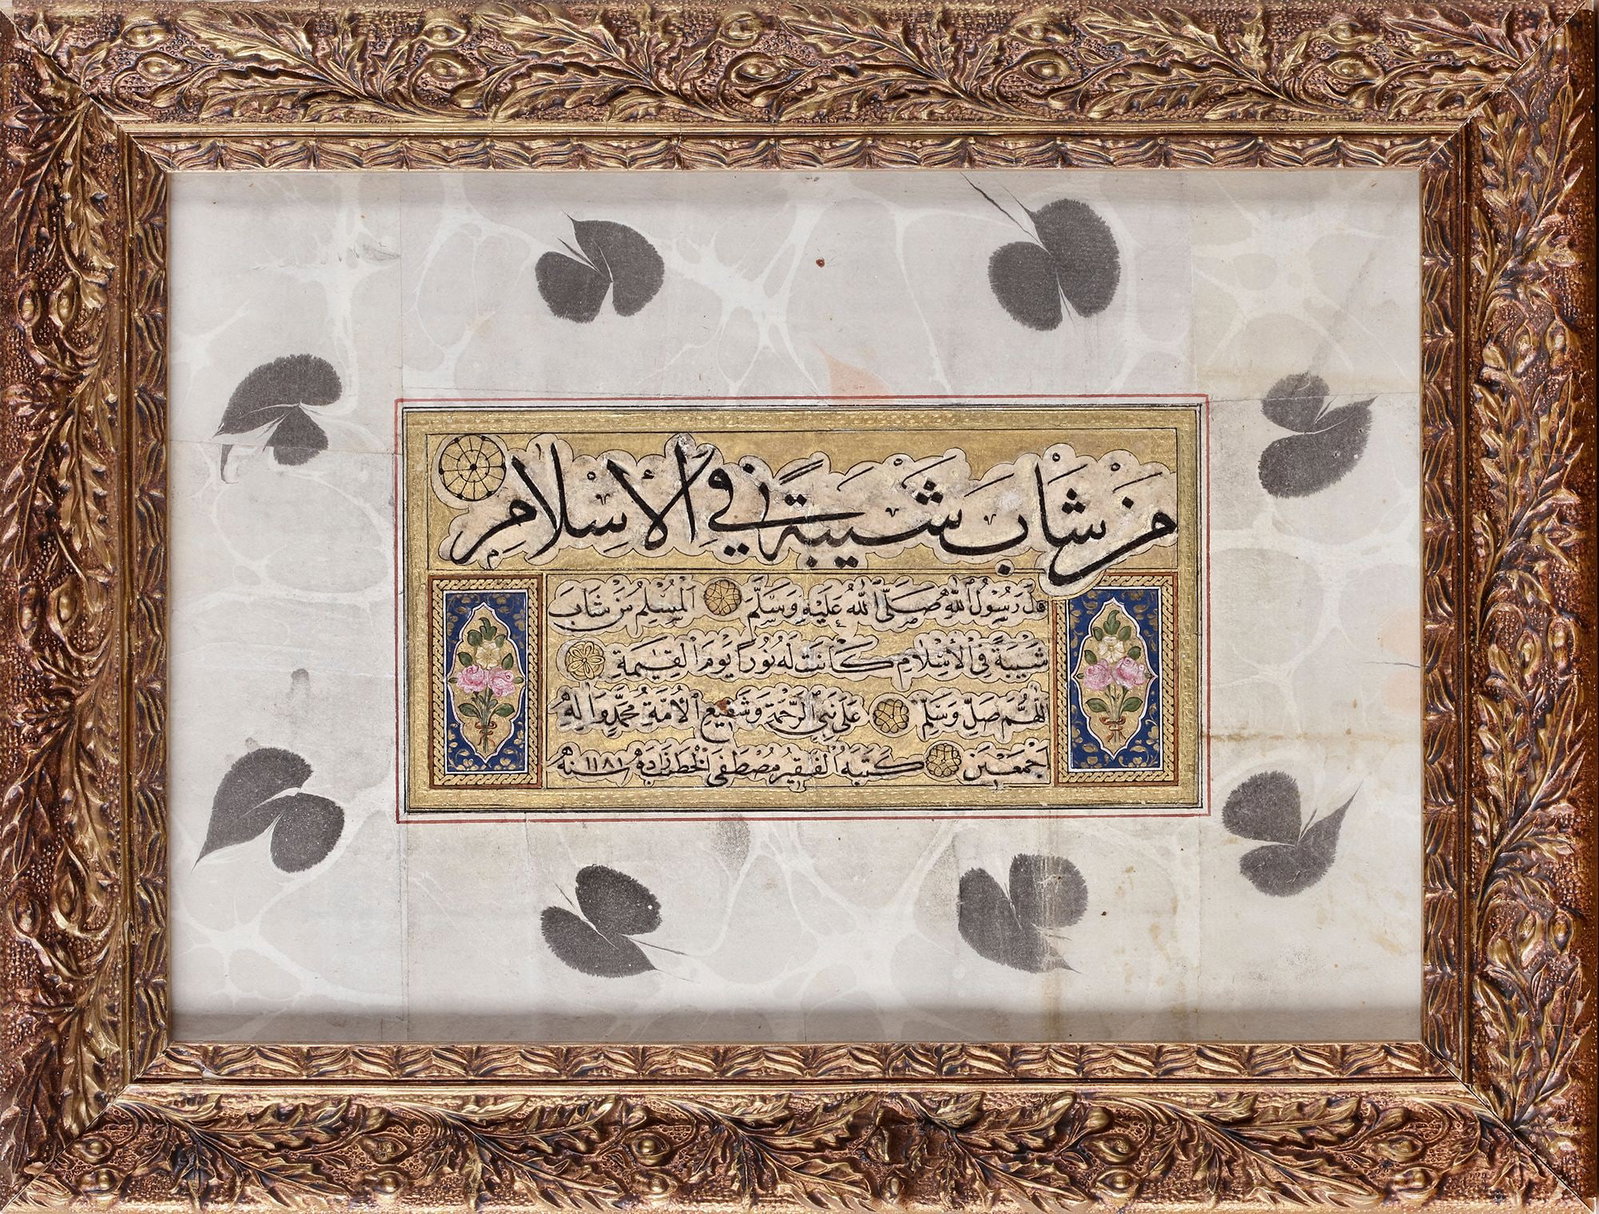 مَنْ شَابَ شَيْبَةً فِي الْإِسْلَامِ
قال رسول الله صلى الله عليه وسلم المسلم من شاب
شيبة في الإسلام كانت له نورا يوم القيمة
اللهم صل وسلم على نبي الرحمة وشفيع الأمة محمد واله
اجمعين كتبه الفقير مصطفى الخطاط زاده سنة ١١٨١